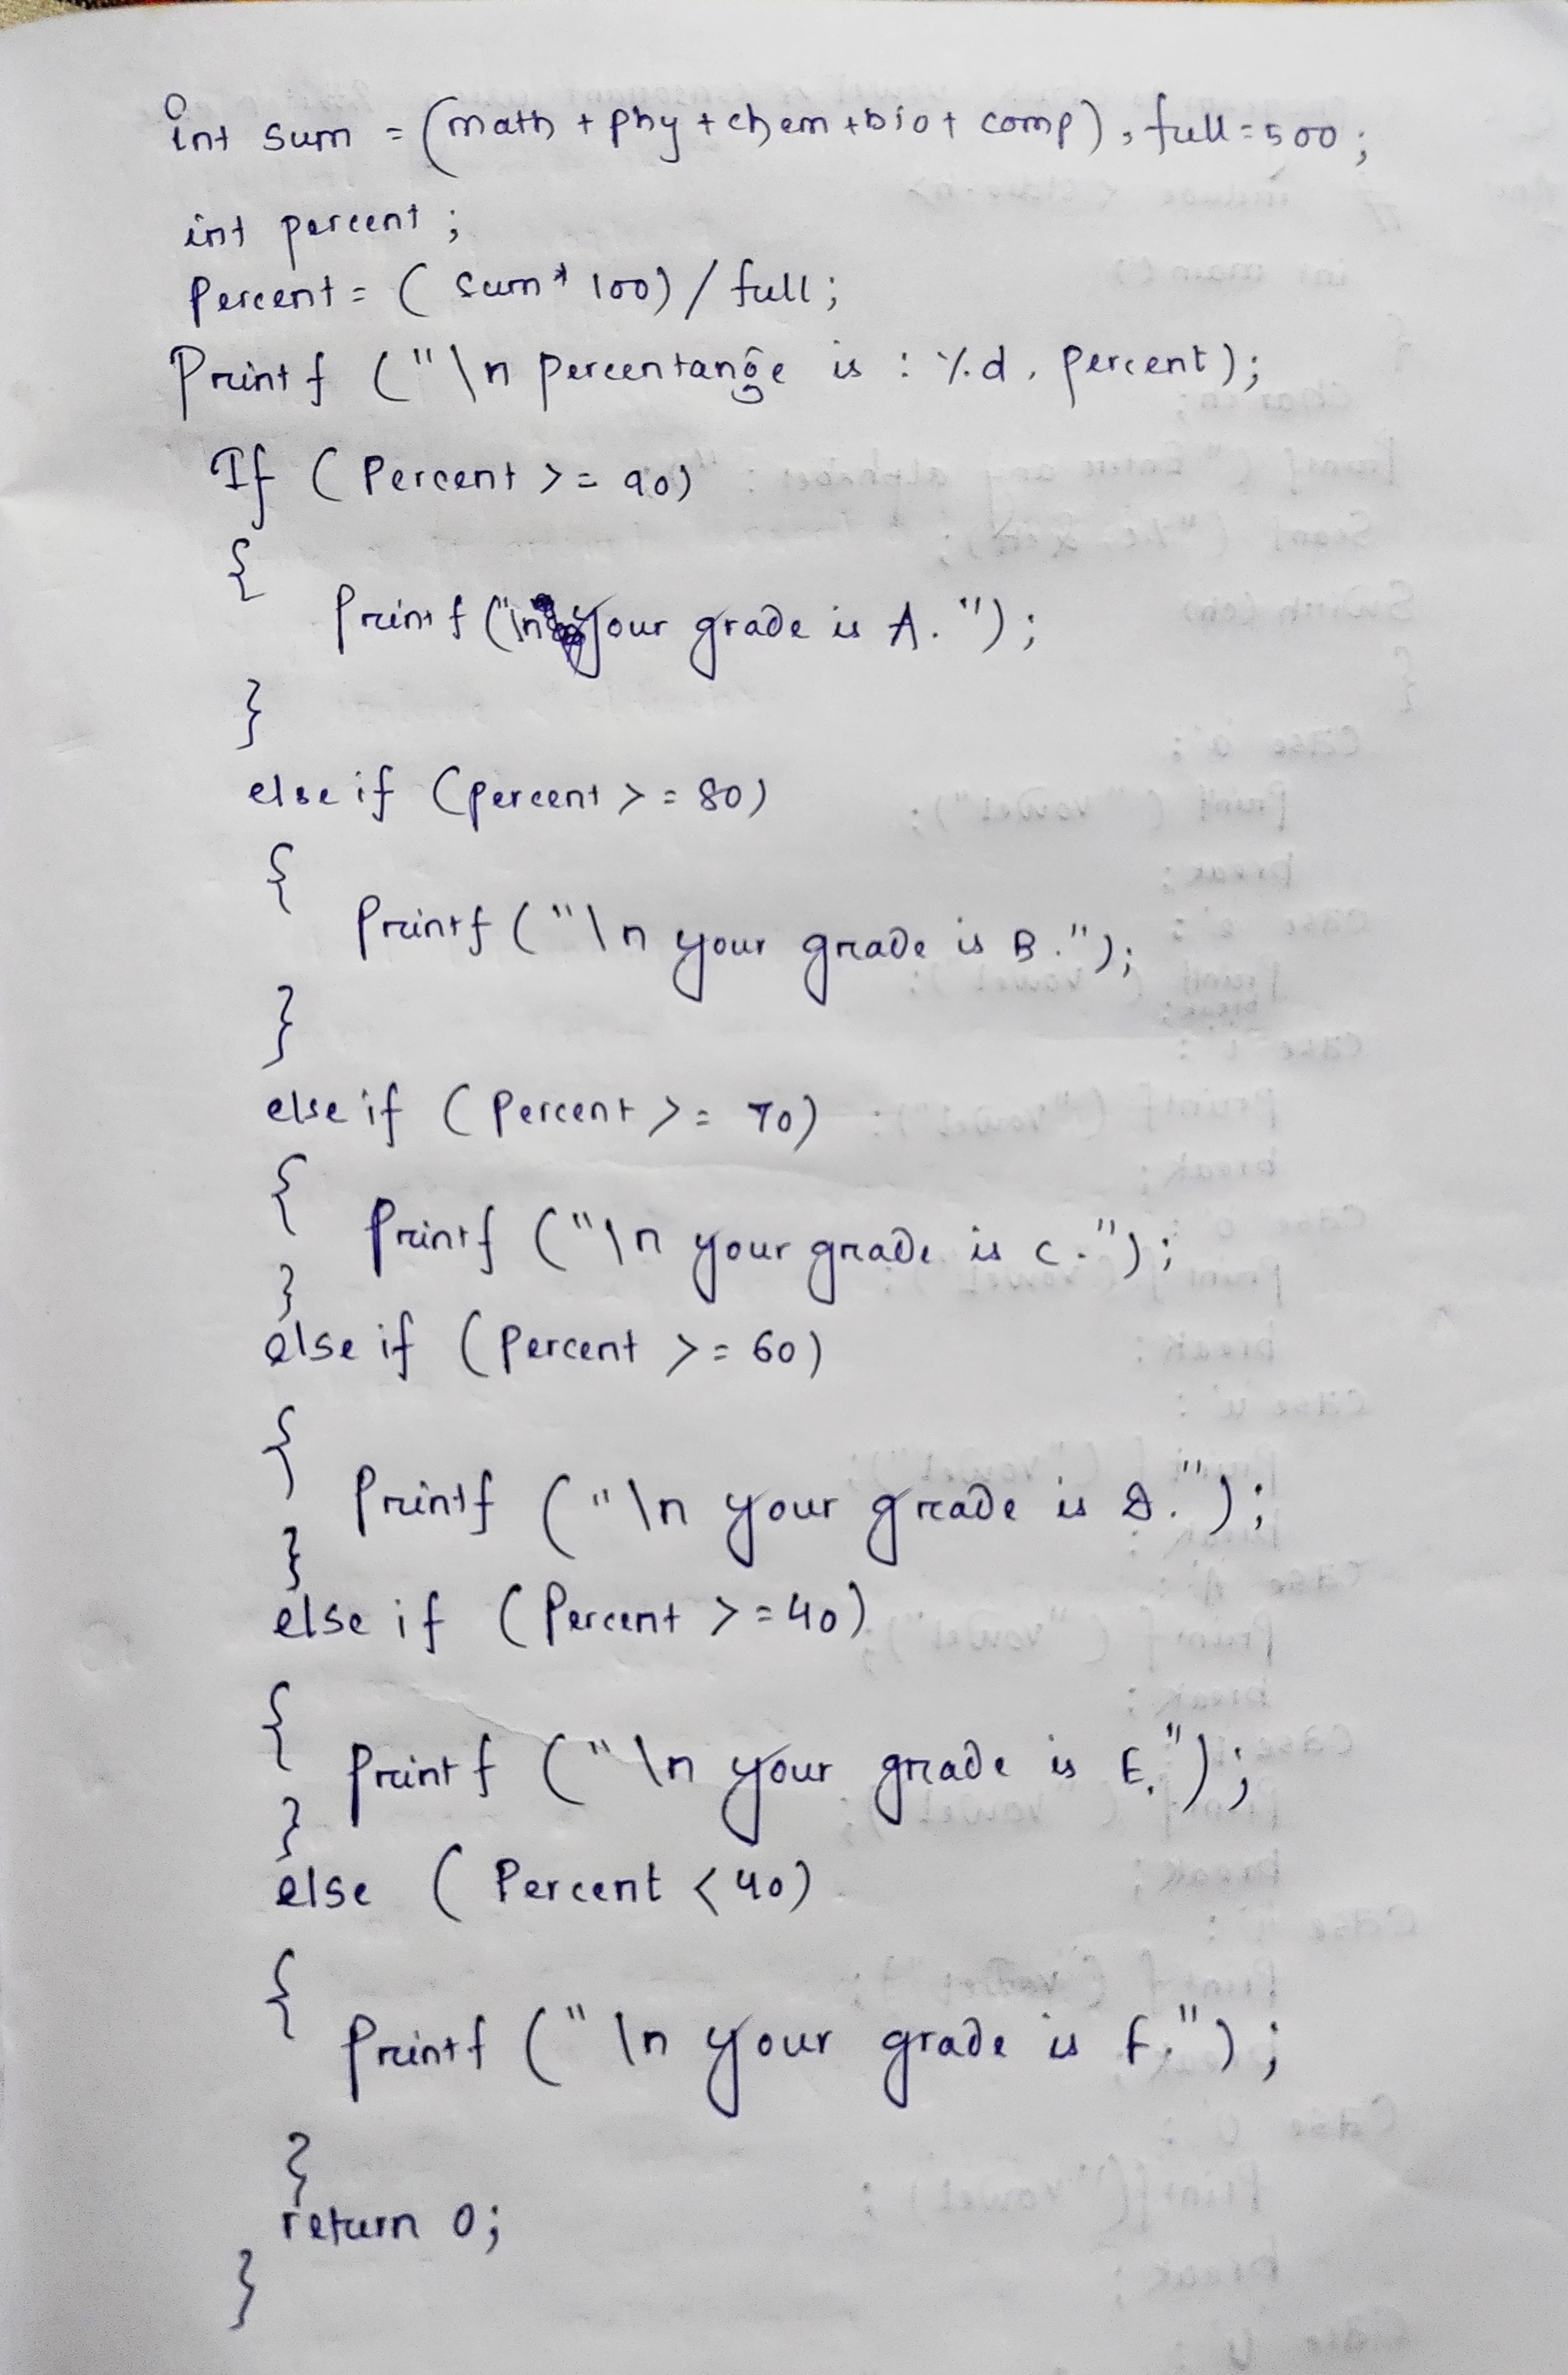 int sum = (math + phy + chem + bio + comp), full = 500;
int percent;
Percent = ( sum * 100) / full;
Printf ("\n percentange is : %d, percent);
If ( Percent >= 90)
{
Printf ("\n your grade is A. ");
}
else if (percent >= 80)
{
Printf ("\n your grade is B.");
}
else if ( Percent >= 70)
{
Printf ("\n your grade is C.");
}
else if ( Percent >= 60)
{
Printf ("\n your grade is D.");
}
else if ( Percent >= 40)
{
Printf ("\n your grade is E.");
}
else ( Percent < 40)
{
Printf (" \n your grade is F.");
}
return 0;
}